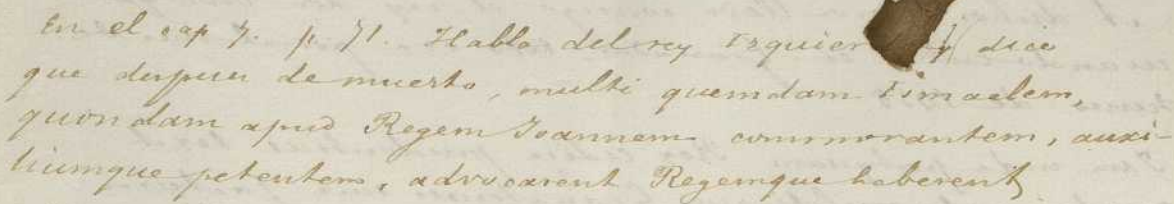 En el cap 7. p. 71. Habla del rey Izquier dice
que despues de muerto, multi quemdam Ismaelem,
quondam apud Regem Joannem commorantem, auxi-
liumque petentem, advocarent Regemque haberent